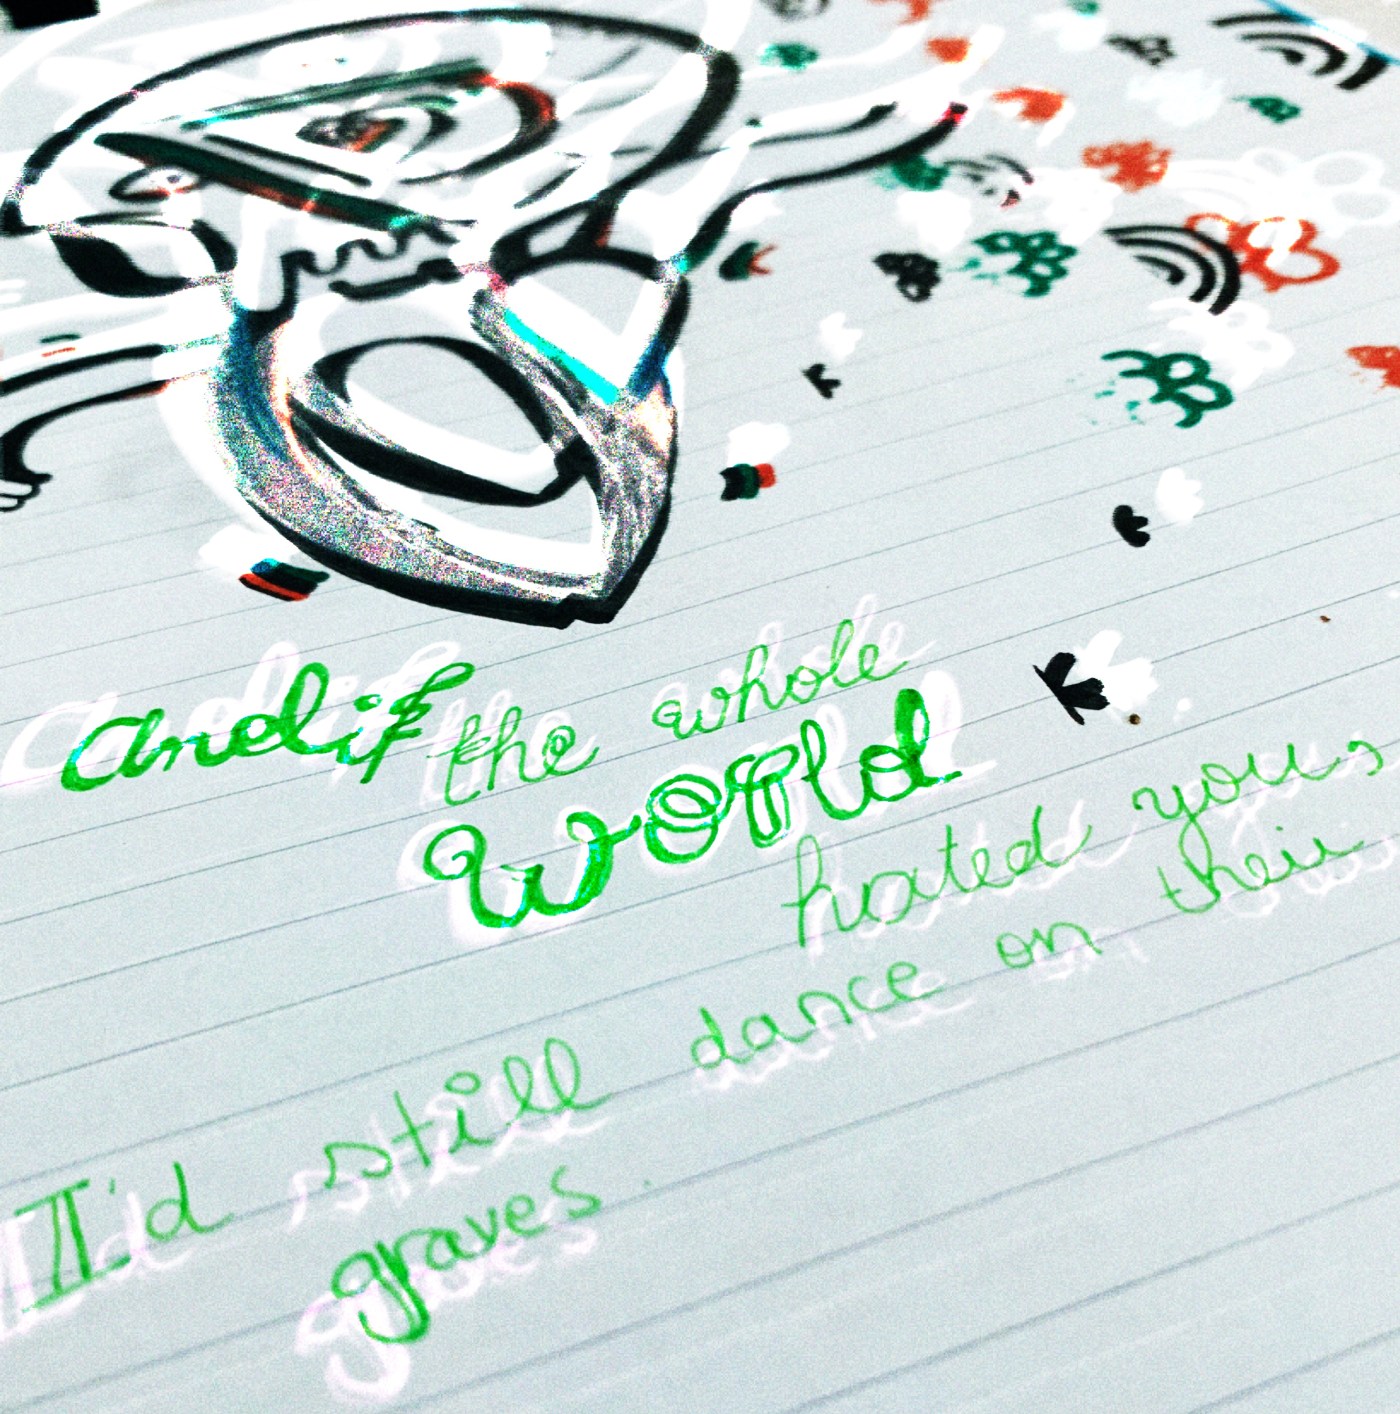 and if the whole
world
hated you,
I'd still dance on their
graves.